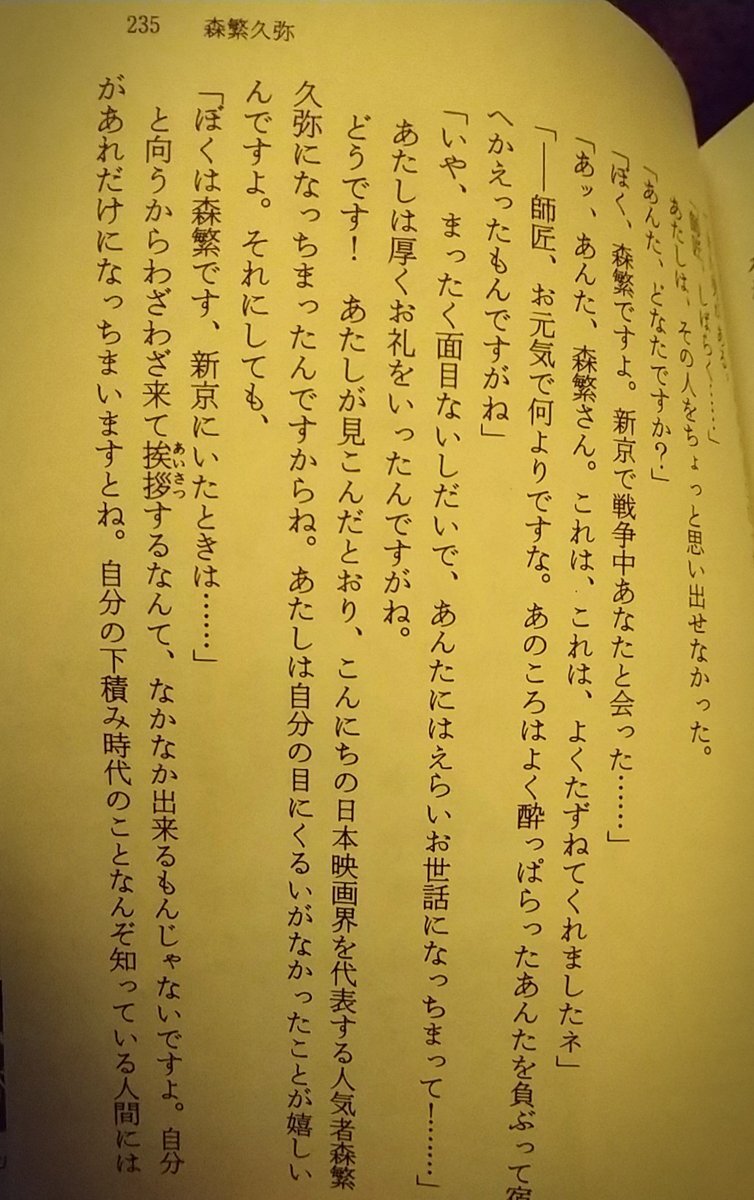 235　森繁久弥
しばらく……」
あたしは、その人をちょっと思い出せなかった。
「あんた、どなたですか？」
「ぼく、森繁ですよ。新京で戦争中あなたと会った……」
「あッ、あんた、森繁さん。これは、これは、よくたずねてくれましたネ」
「――師匠、お元気で何よりですな。あのころはよく酔っぱらったあんたを負ぶって宿
へかえったもんですがね」
「いや、まったく面目ないしだいで、あんたにはえらいお世話になっちまって！……」
あたしは厚くお礼をいったんですがね。
どうです！　あたしが見こんだとおり、こんにちの日本映画界を代表する人気者森繁
久弥になっちまったんですからね。あたしは自分の目にくるいがなかったことが嬉しい
んですよ。それにしても、
「ぼくは森繁です、新京にいたときは……」
と向うからわざわざ来て挨拶するなんて、なかなか出来るもんじゃないですよ。自分
があれだけになっちまいますとね。自分の下積み時代のことなんぞ知っている人間には